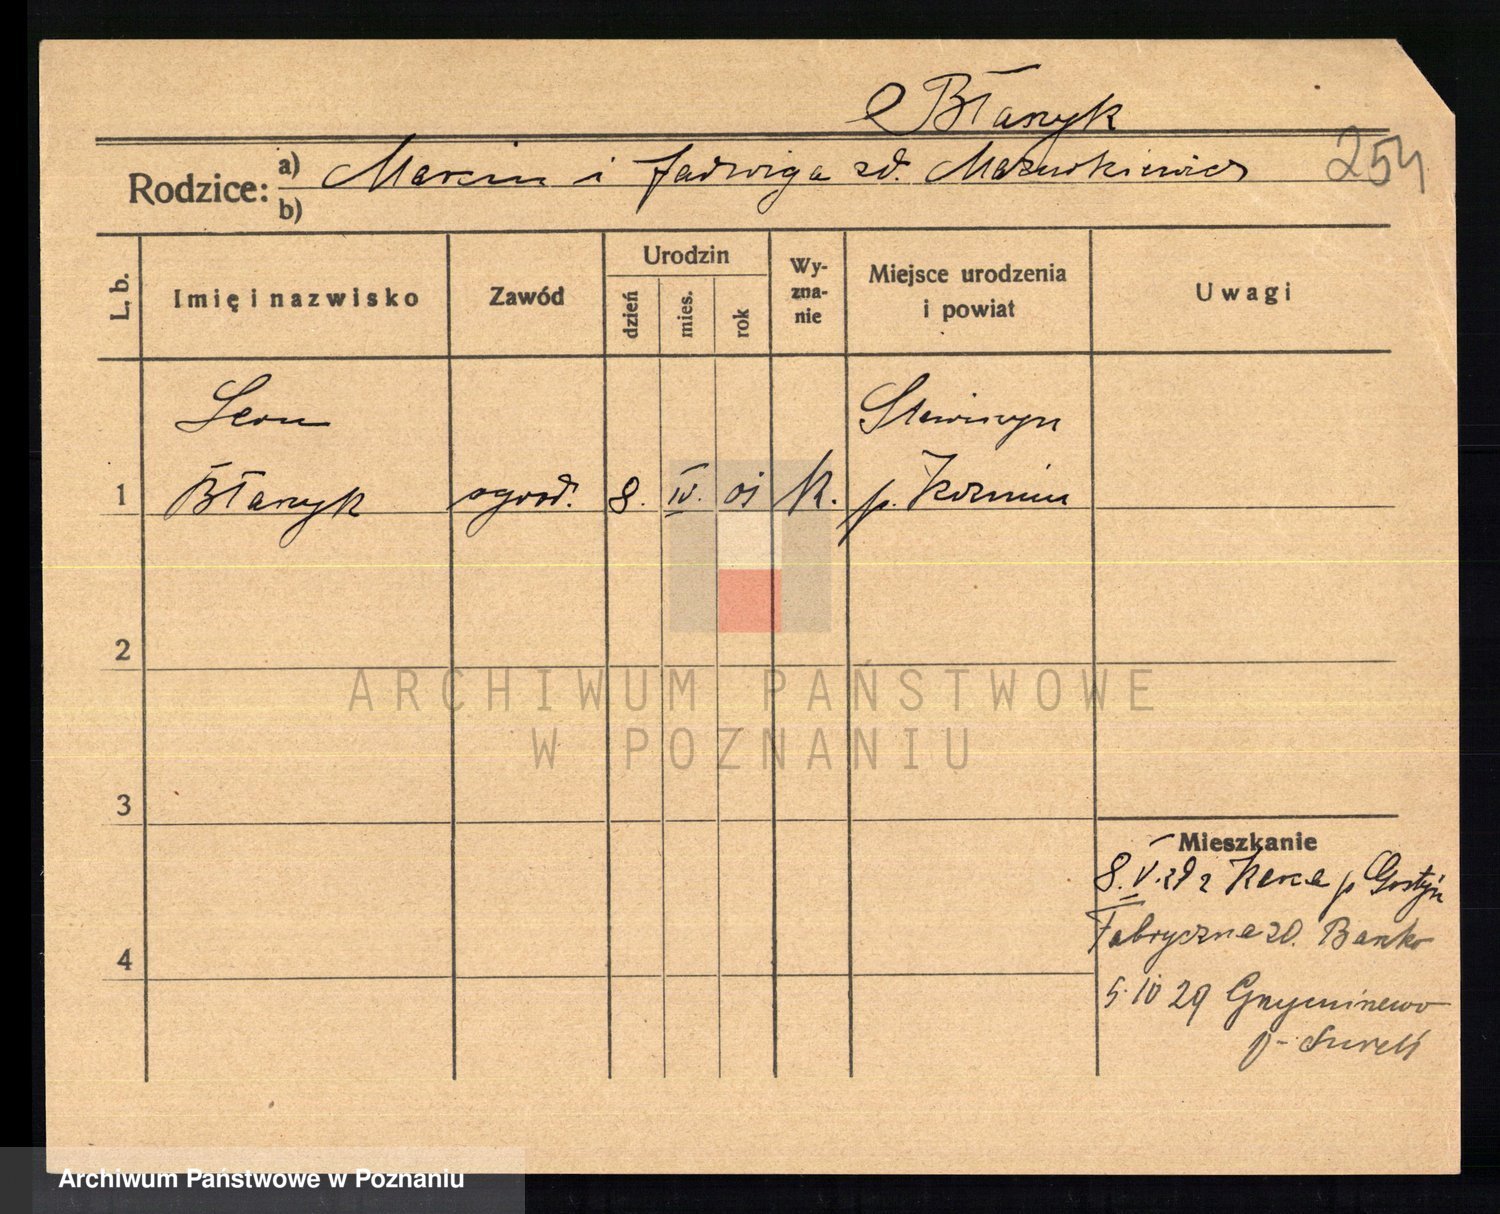 Błaszyk
254
Rodzice: a) Marcin i Jadwiga zd. Mazurkiewicz
b)
L. b.
Imię i nazwisko
Zawód
Urodzin
dzień
mies.
rok
Wy-
zna-
nie
Miejsce urodzenia
i powiat
Uwagi
Leon
Błaszyk
1
ogrod.
8. IV. 01
k.
p. Koźmin
2
3
4
Mieszkanie
8. V. 29 z p Gostyń
Fabryczna 20.
5. 29
p.
ARCHIWUM PAŃSTWOWE
W POZNANIU
Archiwum Państwowe w Poznaniu